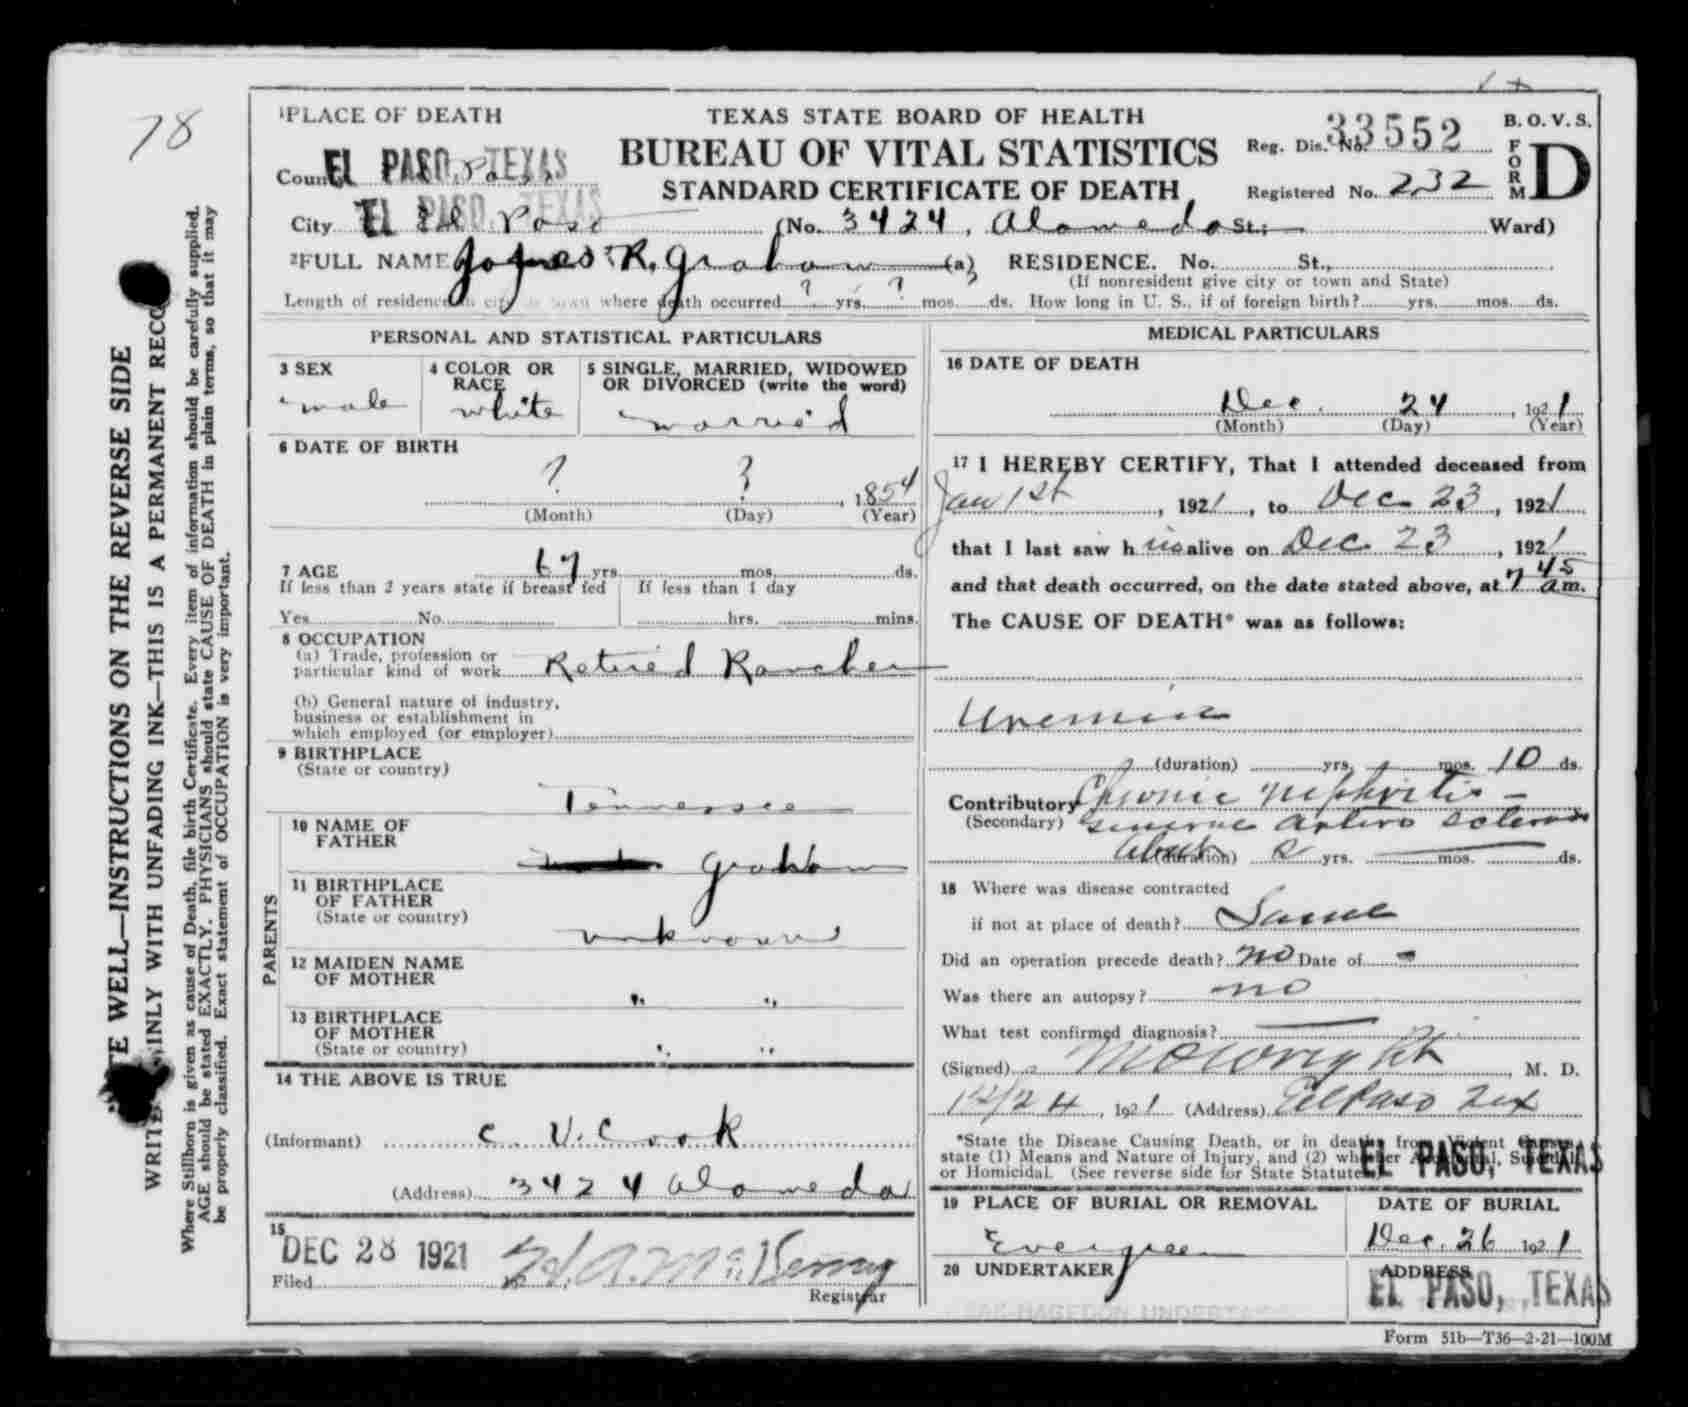 78
1 PLACE OF DEATH
TEXAS STATE BOARD OF HEALTH
BUREAU OF VITAL STATISTICS
STANDARD CERTIFICATE OF DEATH
Reg. Dis. No. 33552
Registered No. 232
B. O. V. S.
FORM D
County EL PASO, TEXAS
City El Paso (No. 3424, Alameda St.; Ward)
EL PASO, TEXAS
2 FULL NAME R. Graham (a) RESIDENCE. No. St.,
(If nonresident give city or town and State)
Length of residence in city or town where death occurred ? yrs. ? mos. ds. How long in U. S., if of foreign birth? yrs. mos. ds.
PERSONAL AND STATISTICAL PARTICULARS
3 SEX
male
4 COLOR OR RACE
white
5 SINGLE, MARRIED, WIDOWED OR DIVORCED (write the word)
married
6 DATE OF BIRTH
? ? , 1854
(Month) (Day) (Year)
7 AGE 67 yrs. mos. ds.
If less than 2 years state if breast fed If less than 1 day
Yes No hrs. mins.
8 OCCUPATION
(a) Trade, profession or
particular kind of work Retired Rancher
(b) General nature of industry,
business or establishment in
which employed (or employer)
9 BIRTHPLACE
(State or country)
Tennessee
PARENTS
10 NAME OF FATHER
Graham
11 BIRTHPLACE OF FATHER
(State or country)
unknown
12 MAIDEN NAME OF MOTHER
" "
13 BIRTHPLACE OF MOTHER
(State or country)
" "
14 THE ABOVE IS TRUE
(Informant) C. V. Cook
(Address) 3424 Alameda
15
DEC 28 1921
Filed
Registrar
MEDICAL PARTICULARS
16 DATE OF DEATH
Dec. 24, 1921
(Month) (Day) (Year)
17 I HEREBY CERTIFY, That I attended deceased from
Jan 1st, 1921, to Dec 23, 1921
that I last saw him alive on Dec 23, 1921
and that death occurred, on the date stated above, at 7 45 a.m.
The CAUSE OF DEATH* was as follows:
Uremia
(duration) yrs. mos. 10 ds.
Contributory Chronic Nephritis -
(Secondary) General Arterio Sclerosis
about (duration) 2 yrs. mos. ds.
18 Where was disease contracted
if not at place of death? Same
Did an operation precede death? no Date of -
Was there an autopsy? no
What test confirmed diagnosis?
(Signed) Wright, M. D.
12/24, 1921 (Address) El Paso Tex
*State the Disease Causing Death, or in deaths from Violent Causes,
state (1) Means and Nature of Injury, and (2) whether Accidental, Suicidal
or Homicidal. (See reverse side for State Statute.)
EL PASO, TEXAS
19 PLACE OF BURIAL OR REMOVAL
Evergreen
DATE OF BURIAL
Dec. 26 1921
20 UNDERTAKER
ADDRESS
EL PASO, TEXAS
Form 51b—T36—2-21—100M
WRITE WELL—INSTRUCTIONS ON THE REVERSE SIDE
WRITE PLAINLY WITH UNFADING INK—THIS IS A PERMANENT RECORD
Where Stillborn is given as cause of Death, file birth Certificate. Every item of information should be carefully supplied.
AGE should be stated EXACTLY. PHYSICIANS should state CAUSE OF DEATH in plain terms, so that it may
be properly classified. Exact statement of OCCUPATION is very important.